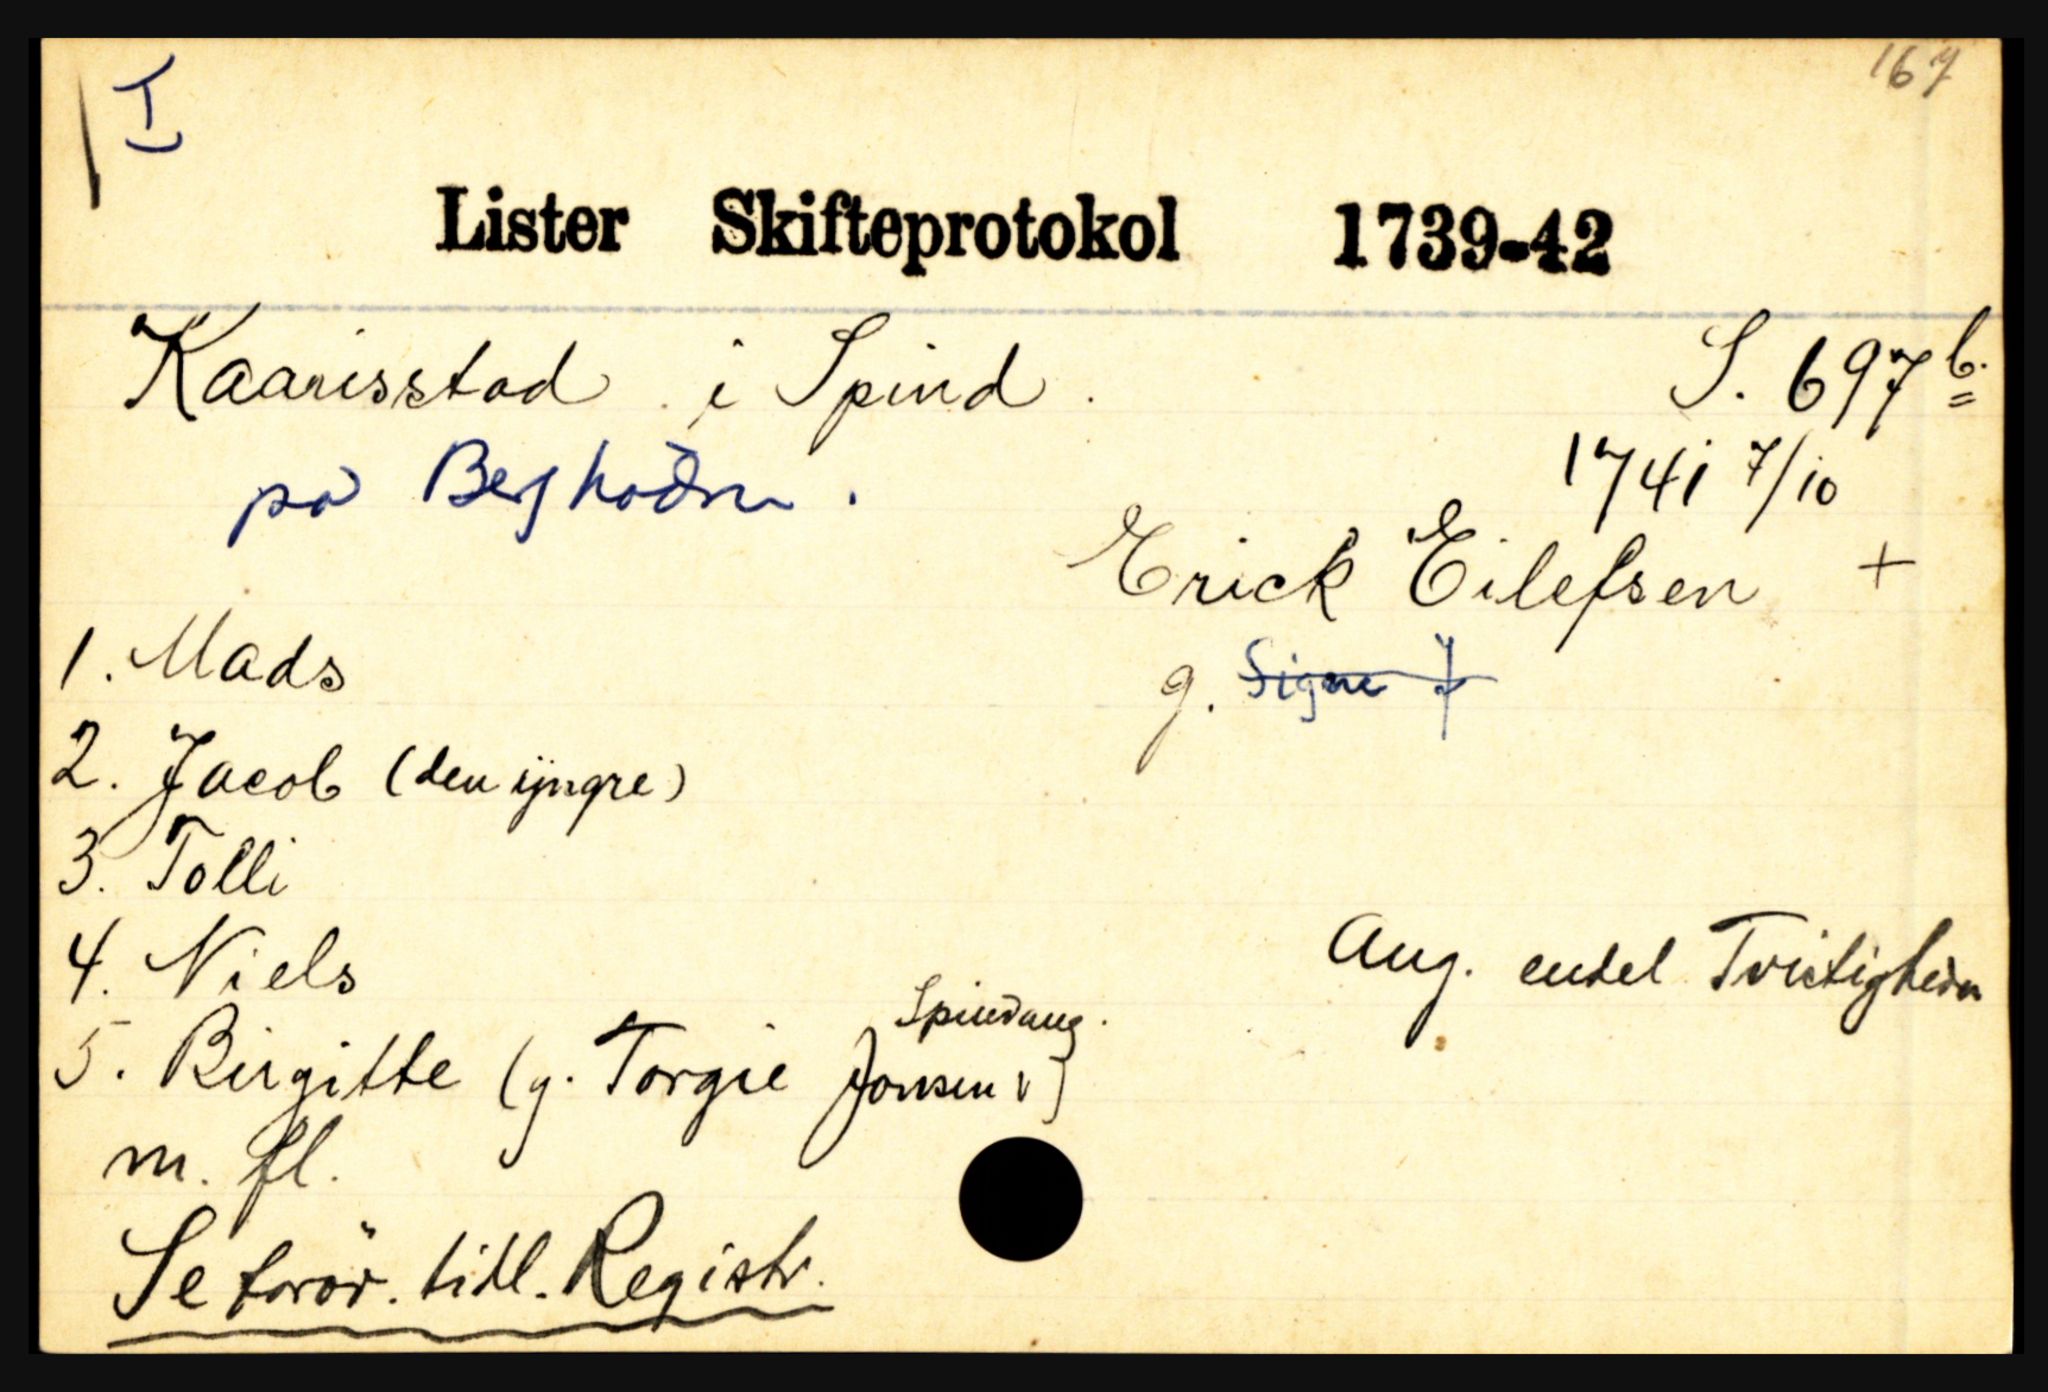 I
167
Lister Skifteprotokol 1739-42
Kaarisstad i Spind.
S. 697 b.
på Berghodn.
1741 7/10
Erick Eilefsen +
g. Signe
1. Mads
2. Jacob (den yngre)
3. Tolli
4. Niels
Ang. endel Tvistigheder
Spindang.
5. Birgitte (g. Torgie Jonsen)
m. fl.
Se forøv. tidl. Registr.